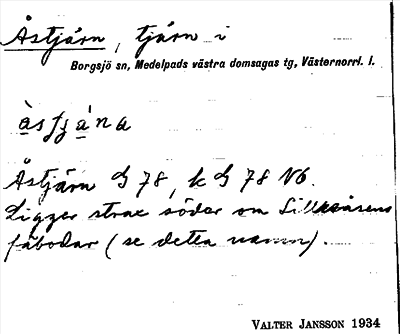 Åstjärn, tjärn i
Borgsjö sn, Medelpads västra domsagas tg, Västernorrl. l.
Åstjärn G 78, k G 78 V6.
Ligger strax söder om Sillreåsens
fäbodar (se detta namn).
VALTER JANSSON 1934